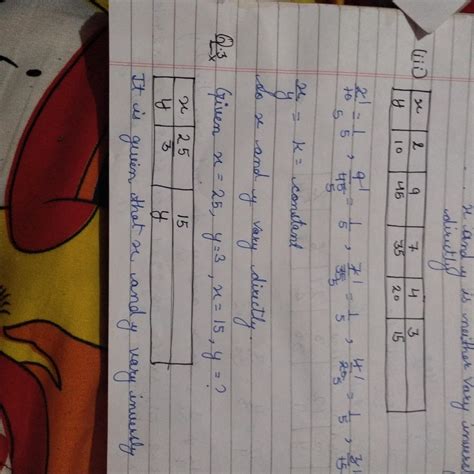 x and y is neither vary inver
directly
(iii)
x 2 9 7 4 3
y 10 45 35 20 15
2/10 = 1/5 , 9/45 = 1/5 , 7/35 = 1/5 , 4/20 = 1/5 , 3/15
x/y = k = constant
so x and y vary directly.
Q3 Given x = 25, y = 3, x = 15, y = ?
x 25 15
y 3 y
It is given that x and y vary inversely